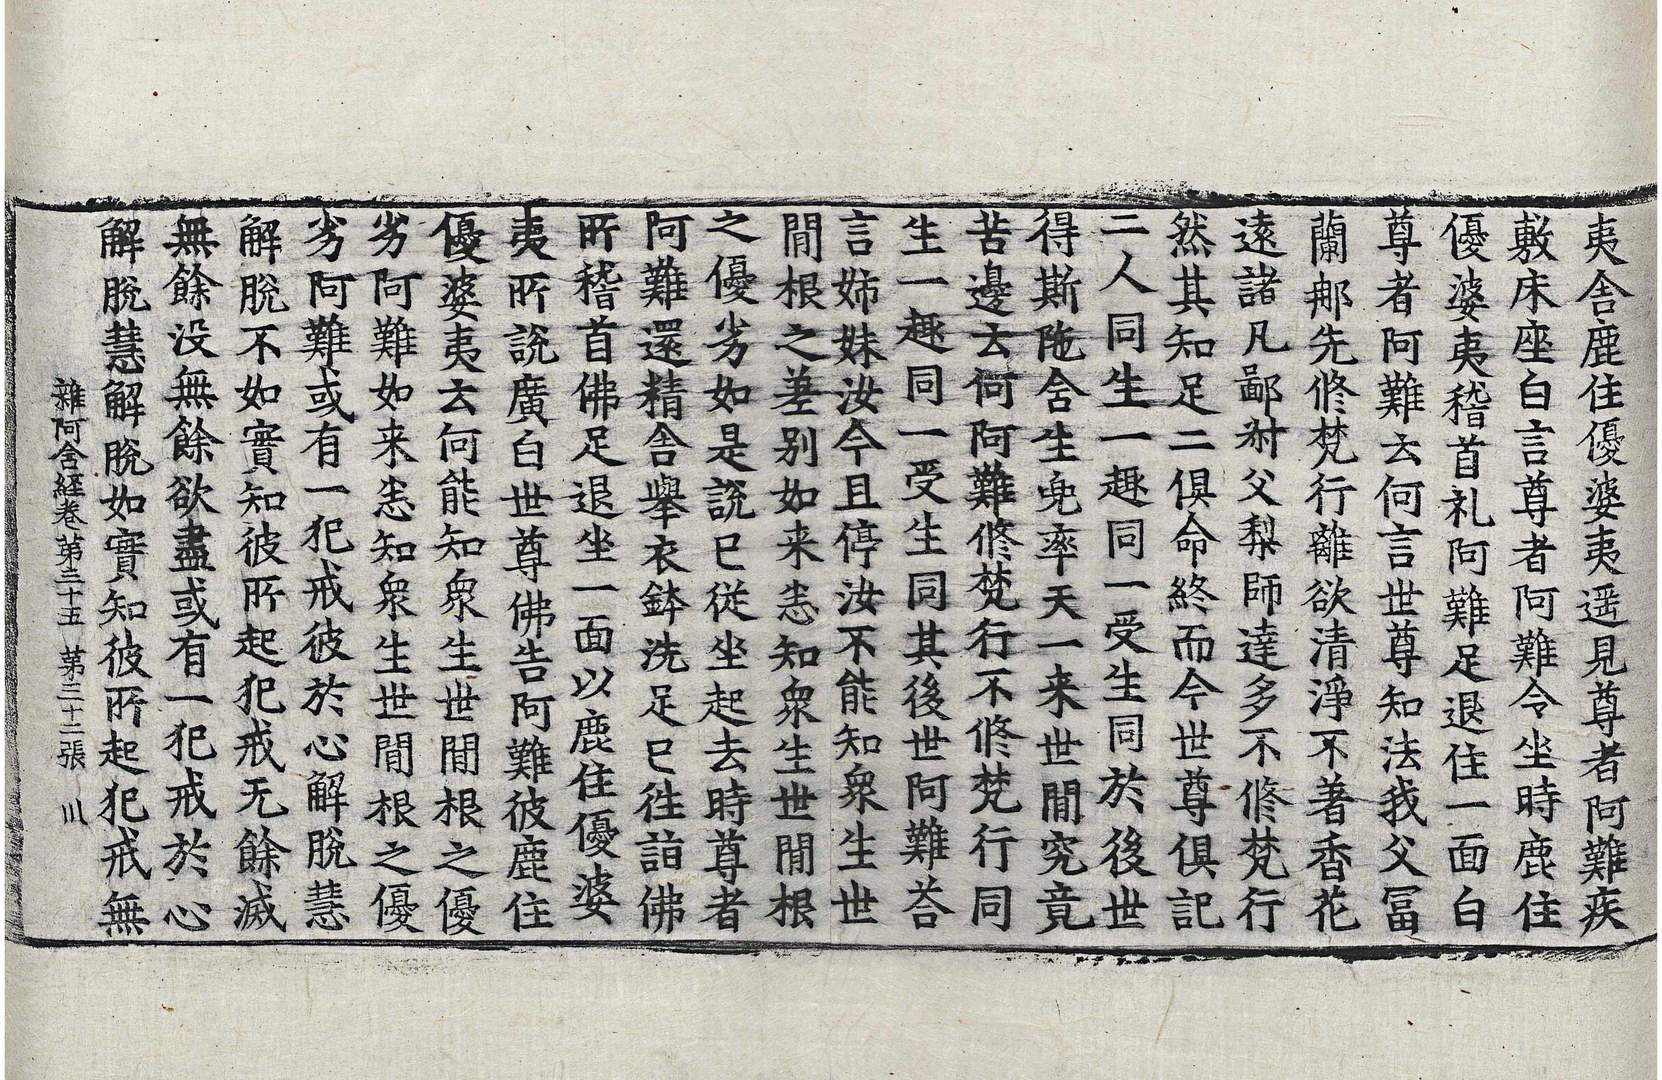 夷舍鹿住優婆夷遥見尊者阿難疾
敷床座白言尊者阿難令坐時鹿住
優婆夷稽首礼阿難足退住一面白
尊者阿難云何言世尊知法我父冨
蘭那先修梵行離欲清淨不著香花
遠諸凡鄙叔父梨師達多不修梵行
然其知足二俱命終而今世尊俱記
二人同生一趣同一受生同於後世
得斯陁含生兜率天一来世間究竟
苦邊云何阿難修梵行不修梵行同
生一趣同一受生同其後世阿難荅
言姊妹汝今且停汝不能知衆生世
間根之差别如来悉知衆生世間根
之優劣如是説已従坐起去時尊者
阿難還精舍舉衣鉢洗足已往詣佛
所稽首佛足退坐一面以鹿住優婆
夷所説廣白世尊佛告阿難彼鹿住
優婆夷云何能知衆生世間根之優
劣阿難如来悉知衆生世間根之優
劣阿難或有一犯戒彼於心解脫慧
解脫不如實知彼所起犯戒无餘滅
無餘没無餘欲盡或有一犯戒於心
解脫慧解脫如實知彼所起犯戒無
雜阿含経卷第三十五 第三十二張